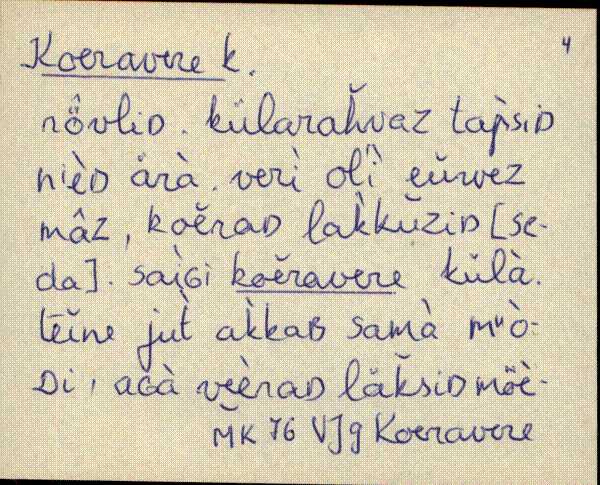 Koeravere k. 4
nȭvliD. külarah̆vaz tap̀siD
nièD ärà. verì oľì eŭwez
mâz, koĕraD lak̀kŭziD [se-
da]. saìGi koĕravere külà.
tĕĭne jut̀ ak̀kaB samà muò-
Di, aGà veèraD läk̆siD möè-
MK 76 VJg Koeravere